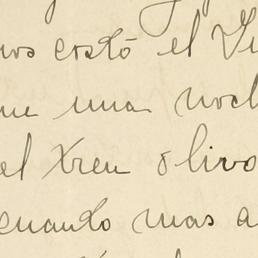 nos costó el Vi
en una noch
el tren o livo
cuando mas a